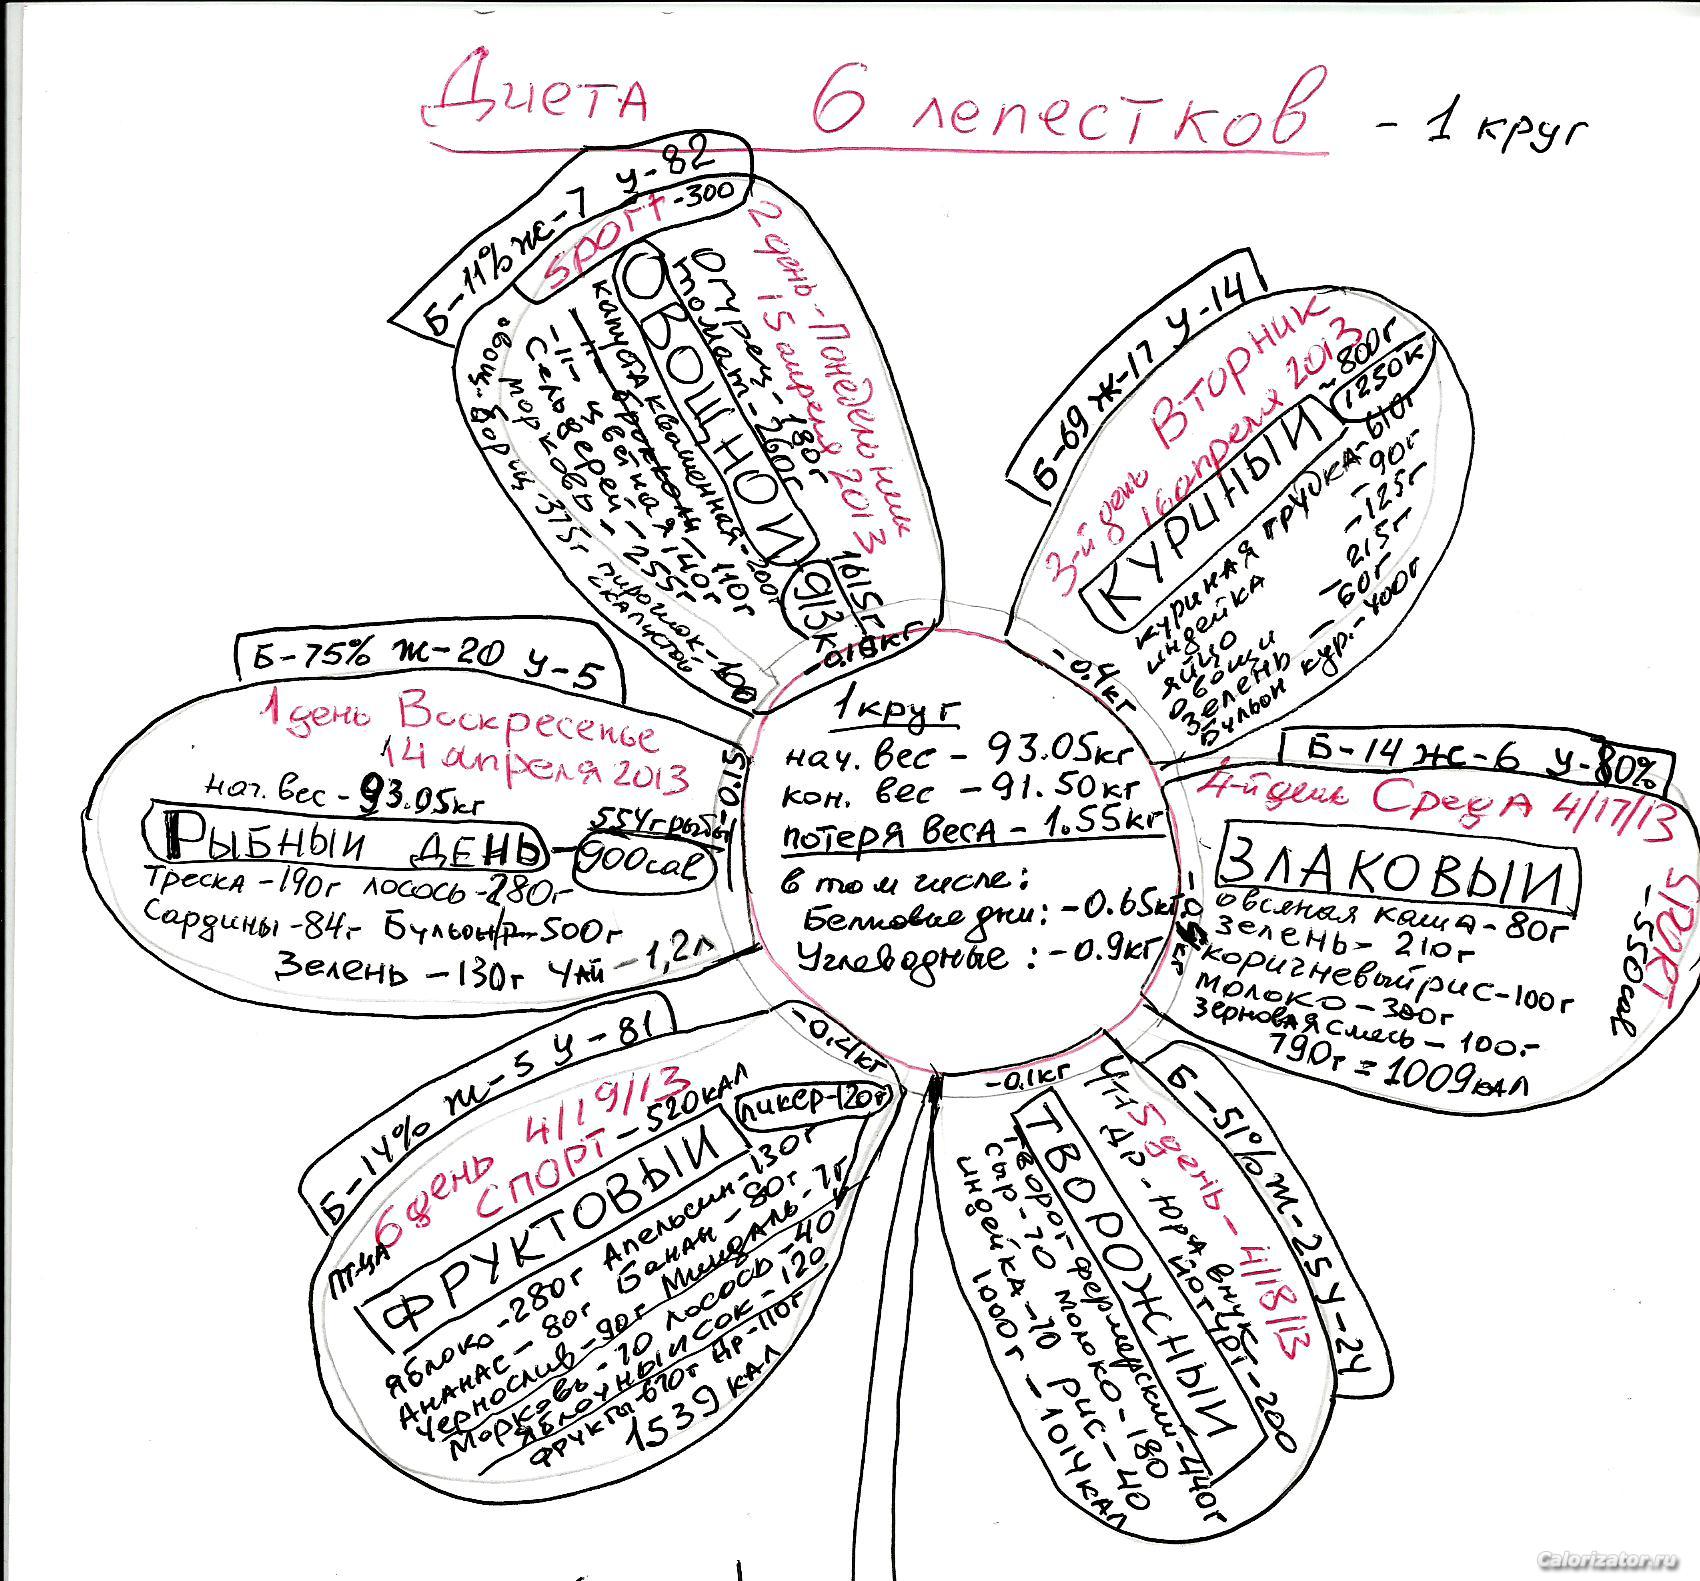 Диета 6 лепестков - 1 круг
Б-11% Ж-7 У-82
sport-300
2 день-Понедельник
15 апреля 2013
ОВОЩНОЙ
913к
1615г
Огурец-180г
Томат-260г
капуста квашенная-200г
-11- брокколи-110г
-11- цветная 140г
Сельдерей-255г
морковь-
овощ. борщ-375г
пирожок-100
с капустой
-0.18кг
Б-69 Ж-17 У-14
3-й день Вторник
16 апреля 2013
КУРИНЫЙ
~800г
1250к
куриная грудка-610г
индейка -90г
яйцо -125г
овощи -215г
зелень -60г
Бульон кур.-400г
-0.4кг
Б-75% Ж-20 У-5
1 день Воскресенье
14 апреля 2013
нач. вес -93.05кг
РЫБНЫЙ ДЕНЬ-
554г рыбы
900cal
Треска-190г лосось-280г
Сардины-84г Бульон/р-500г
Зелень -130г Чай-1,2л
-0.15
1 круг
нач. вес - 93.05кг
кон. вес -91.50кг
потеря веса-1.55кг
в том числе:
Белковые дни: -0.65кг
Углеводные: -0.9кг
Б-14 Ж-6 У-80%
4-й день Среда 4/17/13
ЗЛАКОВЫЙ
SPORT
-550cal
овсяная каша-80г
Зелень- 210г
коричневый рис-100г
молоко-300г
Зерновая смесь-100г
790г = 1009кал
Б-14% Ж-5 У-81
6 день 4/19/13
СПОРТ-520кал
ФРУКТОВЫЙ
ликер-120г
птца
Яблоко-280г Апельсин-130г
Ананас-80г Банан-80г
Чернослив-90г Миндаль-7г
Морковь-70 лосось-40
Яблочный сок-120
фрукты-670г др-110г
1539 кал
-0.4кг
Б-51% Ж-25 У-24
5 день-4/18/13
Др-Юра внук
йогурт-200
ТВОРОЖНЫЙ
творог фермерский-440г
сыр-70 молоко-180
индейка-70 рис-40
1000г-1014кал
-0.1кг
Calorizator.ru